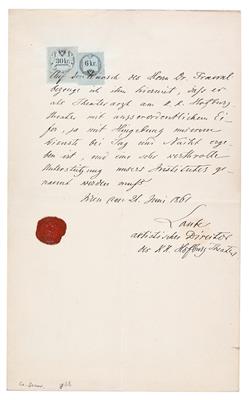 30 kr. 6 kr.
Auf den Wunsch des Herrn Dr.
bezeuge ich ihm hiermit, daß er
als Theaterarzt am k. k. Hofburg
theater mit außerordentlichem Ei-
fer, ja mit Hingebung unserem
Dienste bei Tag und Nacht erge-
ben ist, und eine sehr werthvolle
Unterstützung unsers Institutes ge-
nannt werden muß
Wien den 21. Juni 1861
Laube
artistischer Director
des KK. Hofburgtheaters